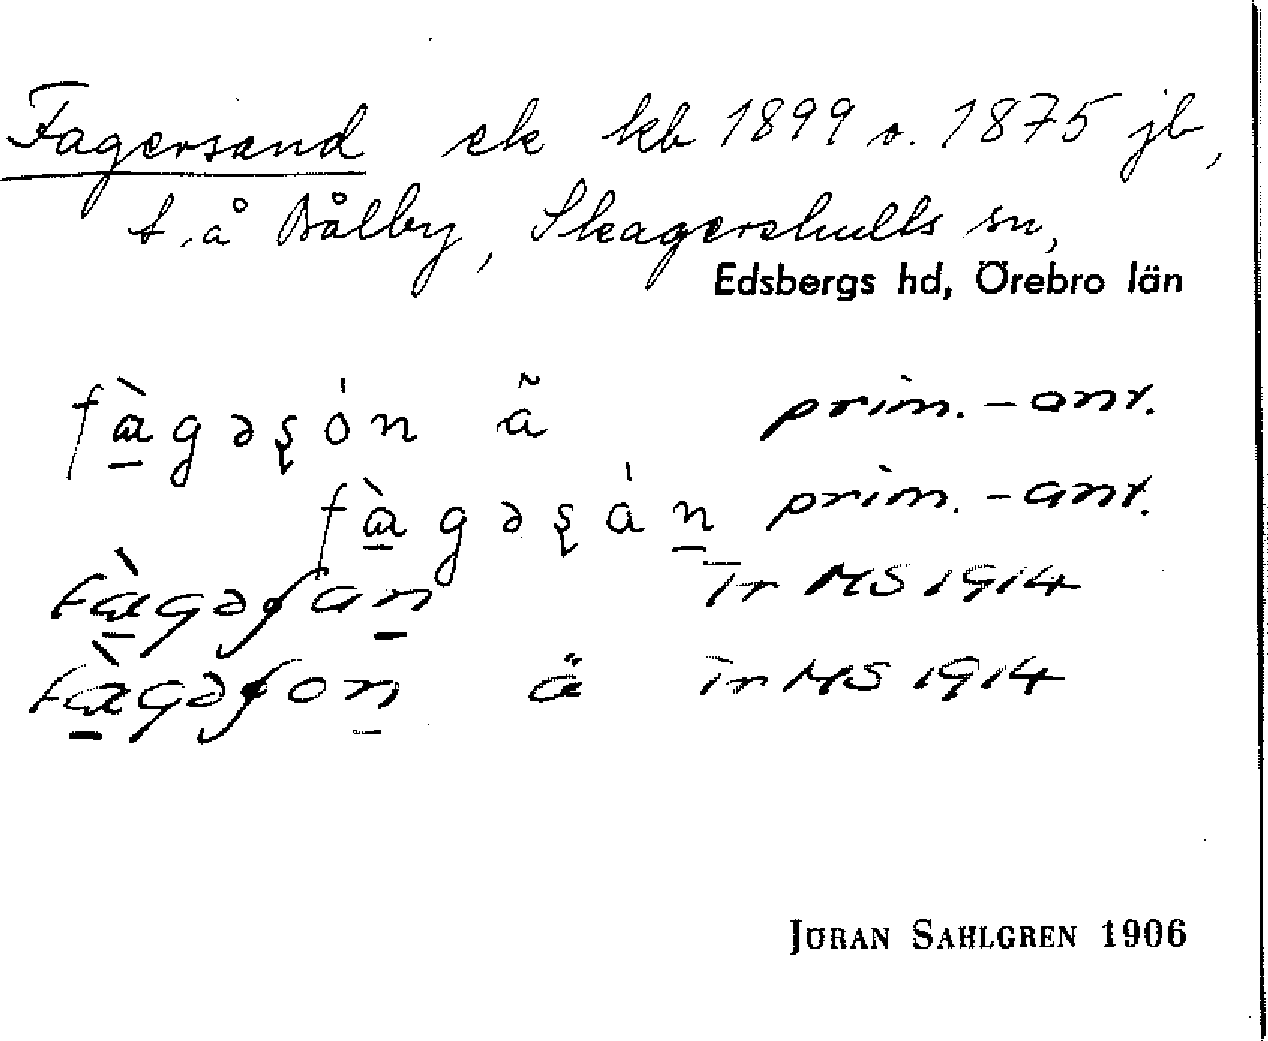 Fagersand ek kb 1899 o. 1875 jb,
t.å Bålby, Skagershults sn,
Edsbergs hd, Örebro län
fàgəʂón ã prim.-anr.
fàgəʂán prim.-anr.
fàgəʂan Ir MS 1914
fàgəʂon ä Ir MS 1914
JÖRAN SAHLGREN 1906